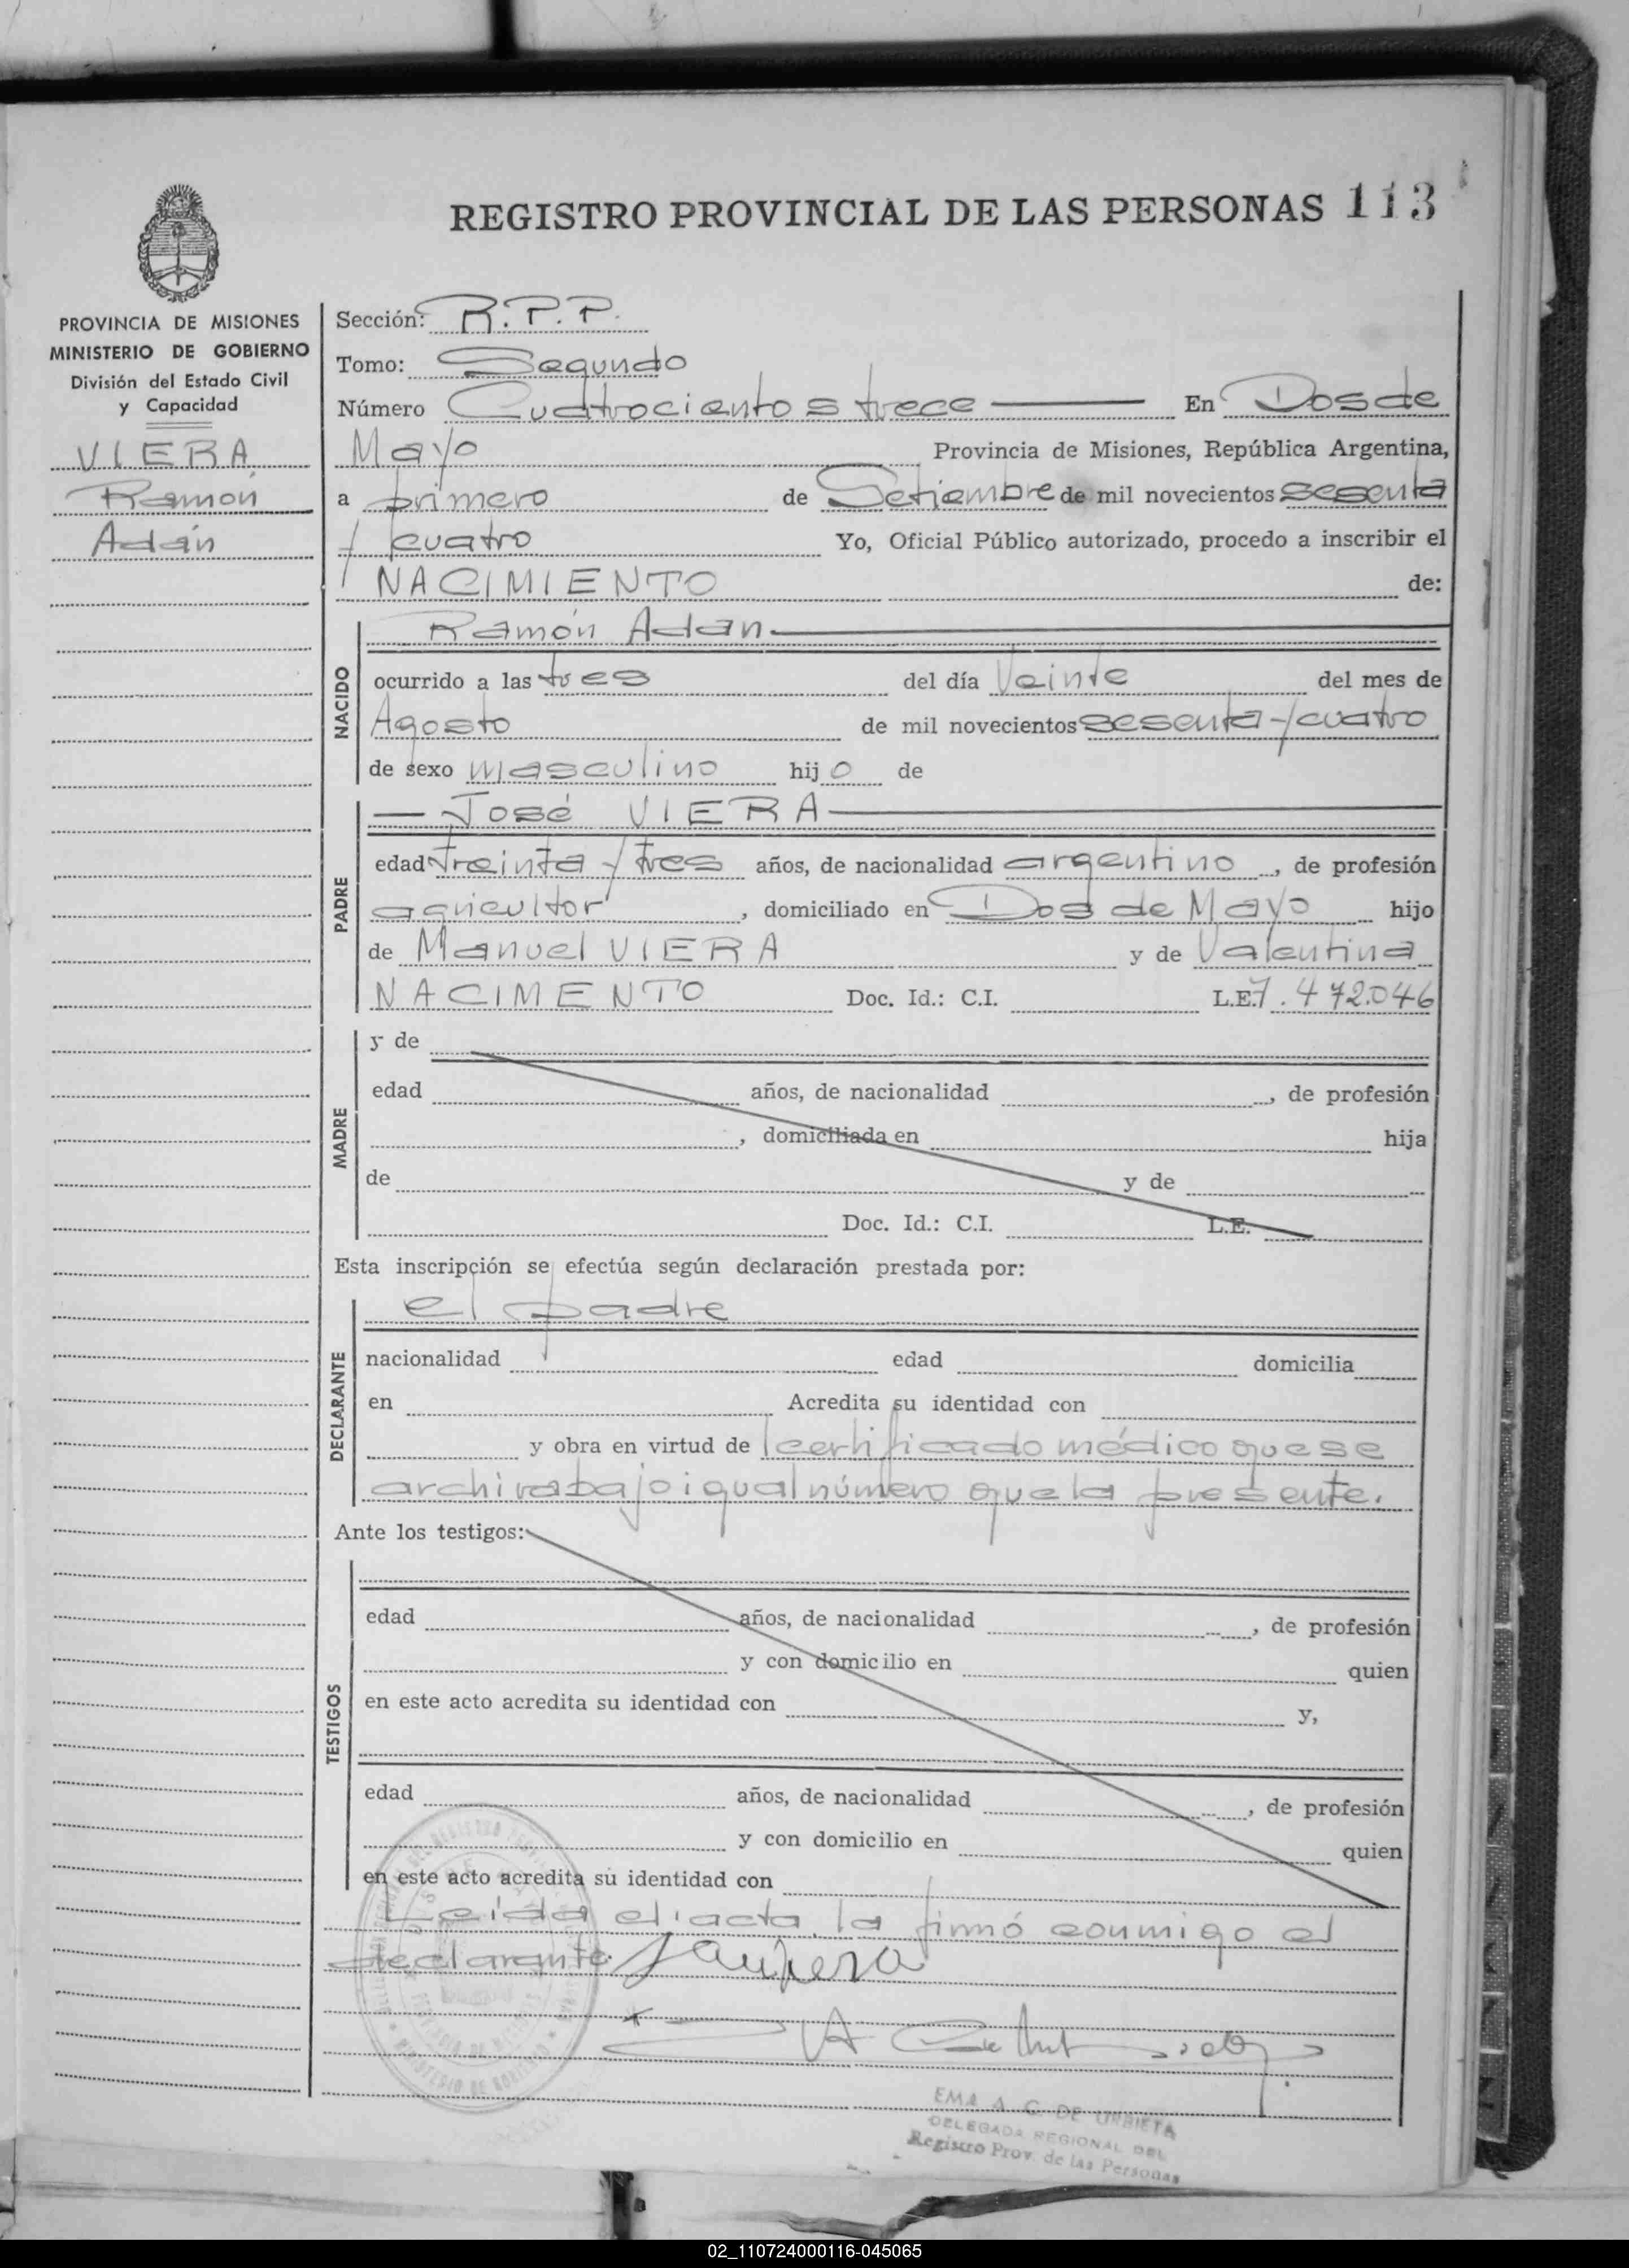 REGISTRO PROVINCIAL DE LAS PERSONAS 113
PROVINCIA DE MISIONES
MINISTERIO DE GOBIERNO
División del Estado Civil
y Capacidad
VIERA
Ramón
Adán
Sección: R.P.P.
Tomo: Segundo
Número Cuatrocientos trece En Dos de
Mayo Provincia de Misiones, República Argentina,
a primero de Setiembre de mil novecientos sesenta
y cuatro Yo, Oficial Público autorizado, procedo a inscribir el
NACIMIENTO de:
NACIDO
Ramón Adan
ocurrido a las tres del día Veinte del mes de
Agosto de mil novecientos sesenta y cuatro
de sexo masculino hijo de
PADRE
José VIERA
edad treinta y tres años, de nacionalidad argentino, de profesión
agricultor, domiciliado en Dos de Mayo hijo
de Manuel VIERA y de Valentina
NACIMENTO Doc. Id.: C.I. L.E. 7.472.046
MADRE
y de
edad años, de nacionalidad , de profesión
, domiciliada en hija
de y de
Doc. Id.: C.I. L.E.
Esta inscripción se efectúa según declaración prestada por:
DECLARANTE
el padre
nacionalidad edad domicilia
en Acredita su identidad con
y obra en virtud de certificado médico que se
archiva bajo igual número que la presente.
Ante los testigos:
TESTIGOS
edad años, de nacionalidad , de profesión
y con domicilio en quien
en este acto acredita su identidad con y,
edad años, de nacionalidad , de profesión
y con domicilio en quien
en este acto acredita su identidad con
Leida el acta la firmó conmigo el
declarante.
EMA A. C. DE URBIETA
DELEGADA REGIONAL DEL
Registro Prov. de las Personas
02_110724000116-045065